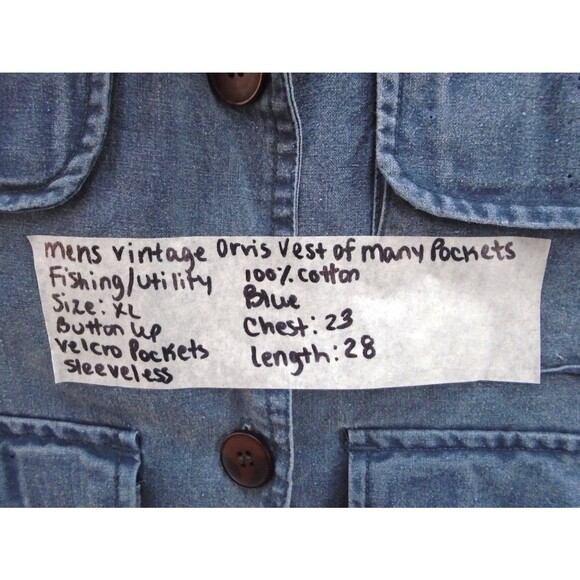 Mens vintage Orvis Vest of Many Pockets
Fishing/utility
Size: XL
Button up
Velcro Pockets
Sleeveless
100% cotton
Blue
Chest: 23
Length: 28